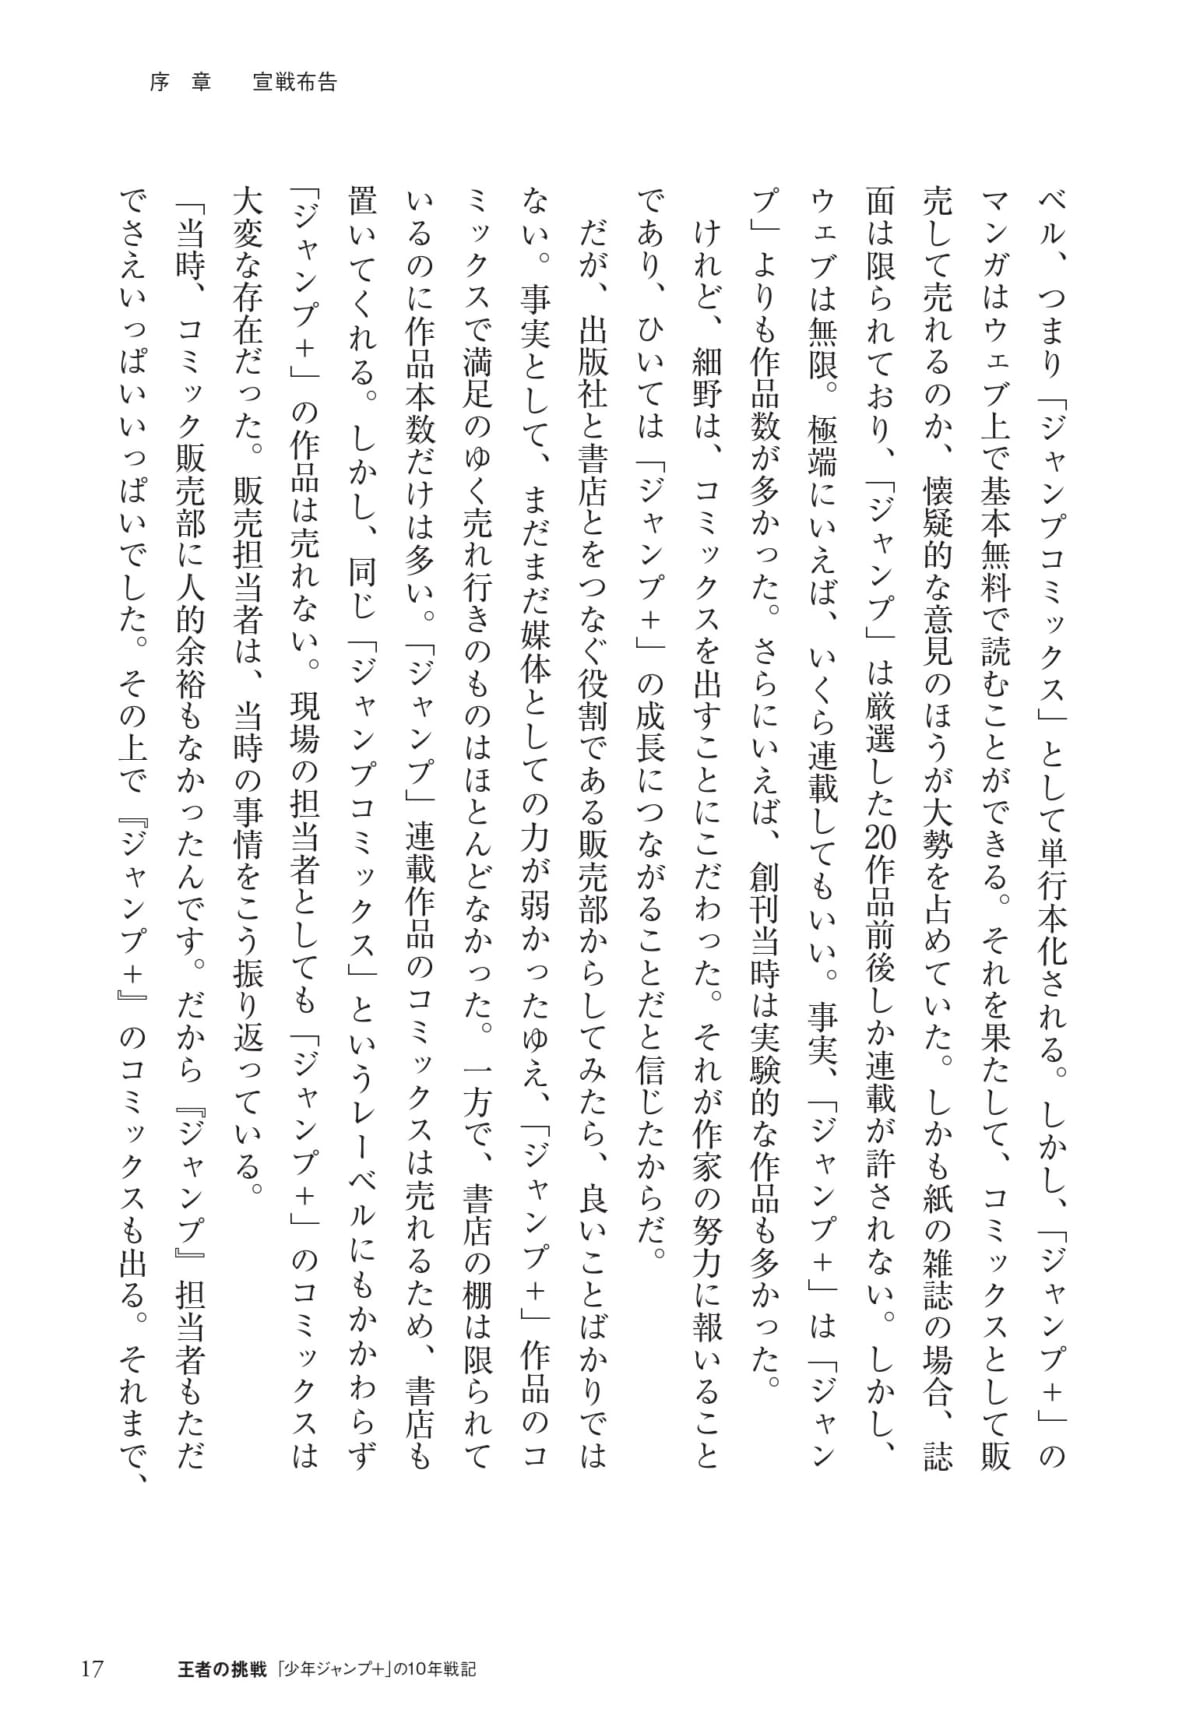 序　章　　宣戦布告
ベル、つまり「ジャンプコミックス」として単行本化される。しかし、「ジャンプ＋」の
マンガはウェブ上で基本無料で読むことができる。それを果たして、コミックスとして販
売して売れるのか、懐疑的な意見のほうが大勢を占めていた。しかも紙の雑誌の場合、誌
面は限られており、「ジャンプ」は厳選した20作品前後しか連載が許されない。しかし、
ウェブは無限。極端にいえば、いくら連載してもいい。事実、「ジャンプ＋」は「ジャン
プ」よりも作品数が多かった。さらにいえば、創刊当時は実験的な作品も多かった。
　けれど、細野は、コミックスを出すことにこだわった。それが作家の努力に報いること
であり、ひいては「ジャンプ＋」の成長につながることだと信じたからだ。
　だが、出版社と書店とをつなぐ役割である販売部からしてみたら、良いことばかりでは
ない。事実として、まだまだ媒体としての力が弱かったゆえ、「ジャンプ＋」作品のコ
ミックスで満足のゆく売れ行きのものはほとんどなかった。一方で、書店の棚は限られて
いるのに作品本数だけは多い。「ジャンプ」連載作品のコミックスは売れるため、書店も
置いてくれる。しかし、同じ「ジャンプコミックス」というレーベルにもかかわらず
「ジャンプ＋」の作品は売れない。現場の担当者としても「ジャンプ＋」のコミックスは
大変な存在だった。販売担当者は、当時の事情をこう振り返っている。
「当時、コミック販売部に人的余裕もなかったんです。だから『ジャンプ』担当者もただ
でさえいっぱいいっぱいでした。その上で『ジャンプ＋』のコミックスも出る。それまで、
17　王者の挑戦　「少年ジャンプ＋」の10年戦記